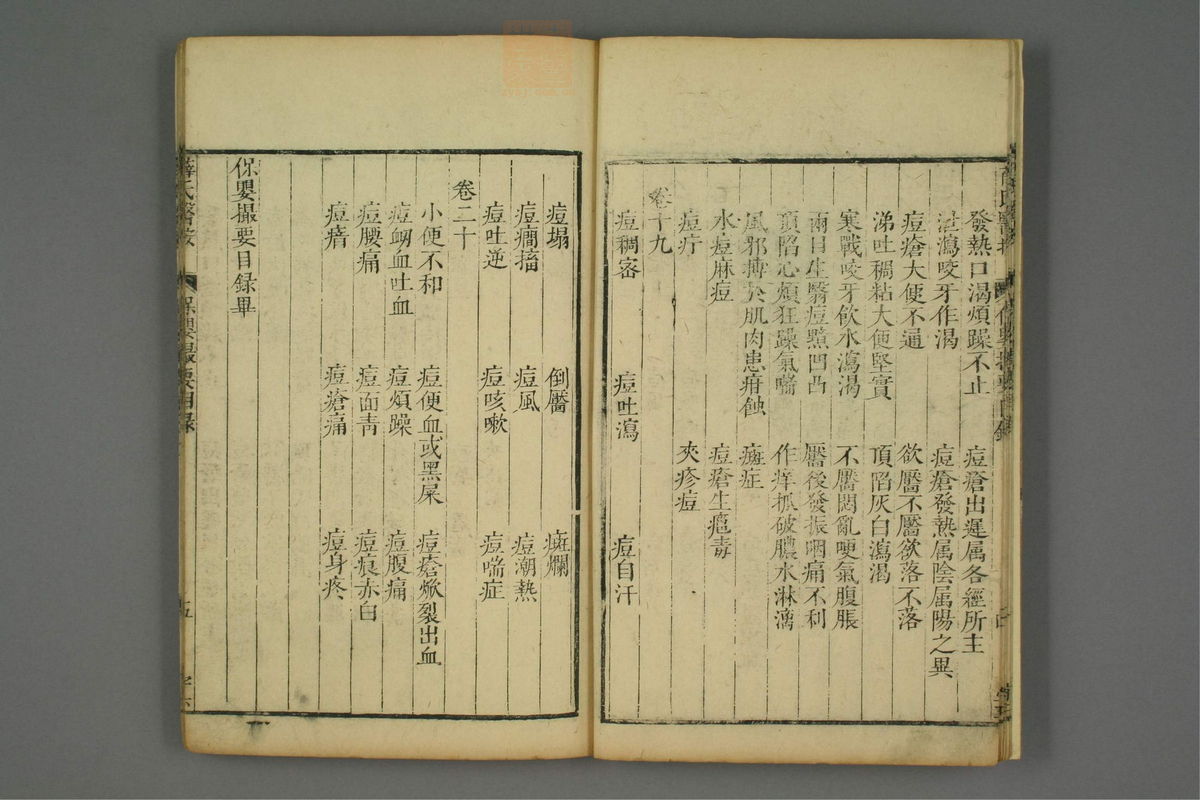 發熱口渴煩躁不止 痘瘡出遲属各經所主
泄瀉咬牙作渴 痘瘡發熱属陰属陽之異
痘瘡大便不通 欲靨不靨欲落不落
涕吐稠粘大便堅實 頂陷灰白瀉渴
寒戰咬牙飲水瀉渴 不靨悶亂哽氣腹脹
兩目生翳痘黶凹凸 靨後發振咽痛不利
頂陷心煩狂躁氣喘 作痒抓破膿水淋漓
風邪搏於肌肉患疳蝕 癍症
水痘麻痘 痘瘡生痘毒
痘疔 夾疹痘
卷十九
痘稠密 痘吐瀉 痘自汗
痘塌 倒靨 癍爛
痘癎搐 痘風 痘潮熱
痘吐逆 痘咳嗽 痘喘症
卷二十
小便不和 痘便血或黑屎 痘瘡焮裂出血
痘衂血吐血 痘煩躁 痘腹痛
痘腰痛 痘面青 痘痕赤白
痘瘖 痘瘡痛 痘身疼
保嬰撮要目録畢
薛氏醫按 保嬰撮要目録 五